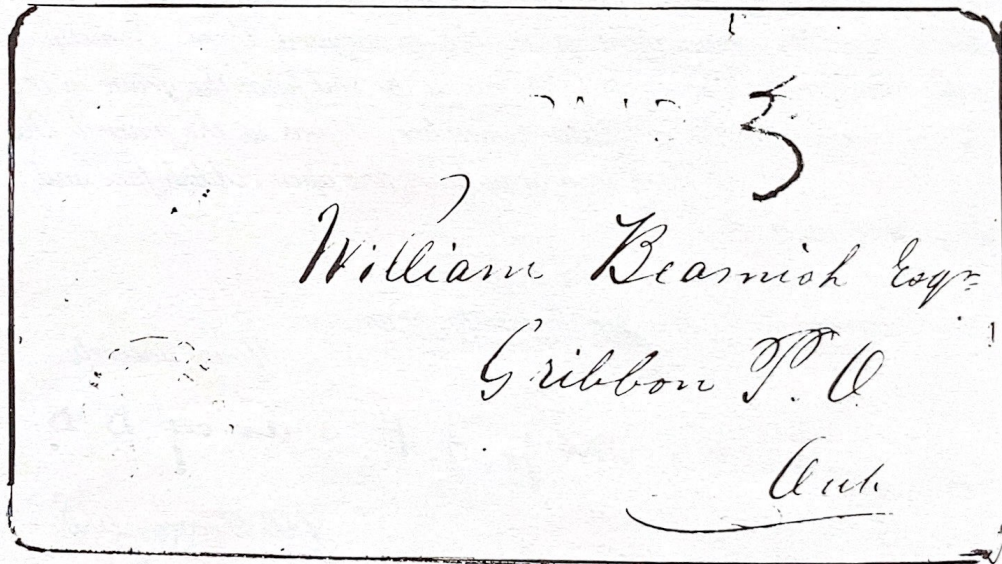 3
William Beamish Esqr
Gribbon P. O
Ont.